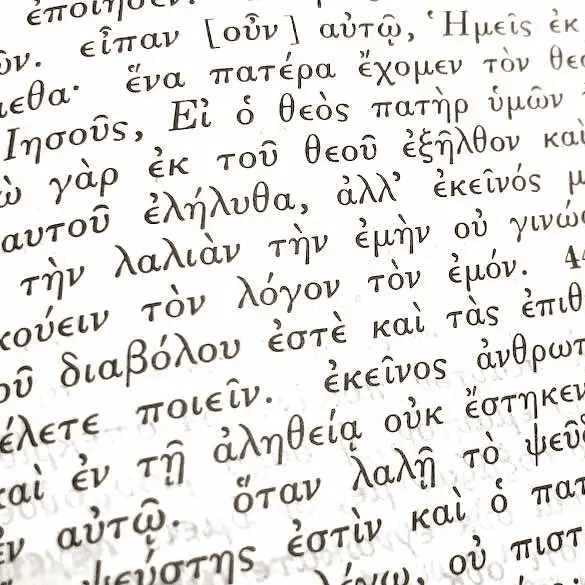 ἐποίησεν.
εἶπαν [οὖν] αὐτῷ, Ἡμεῖς ἐκ
ἕνα πατέρα ἔχομεν τὸν
Ἰησοῦς, Εἰ ὁ θεὸς πατὴρ ὑμῶν
γὰρ ἐκ τοῦ θεοῦ ἐξῆλθον καὶ
ἐλήλυθα, ἀλλ’ ἐκεῖνός
τὴν λαλιὰν τὴν ἐμὴν οὐ
τὸν λόγον τὸν ἐμόν.
διαβόλου ἐστὲ καὶ τὰς
ποιεῖν. ἐκεῖνος
καὶ ἐν τῇ ἀληθείᾳ οὐκ ἔστηκεν
αὐτῷ. ὅταν λαλῇ τὸ
ψεύστης ἐστὶν καὶ ὁ
οὐ